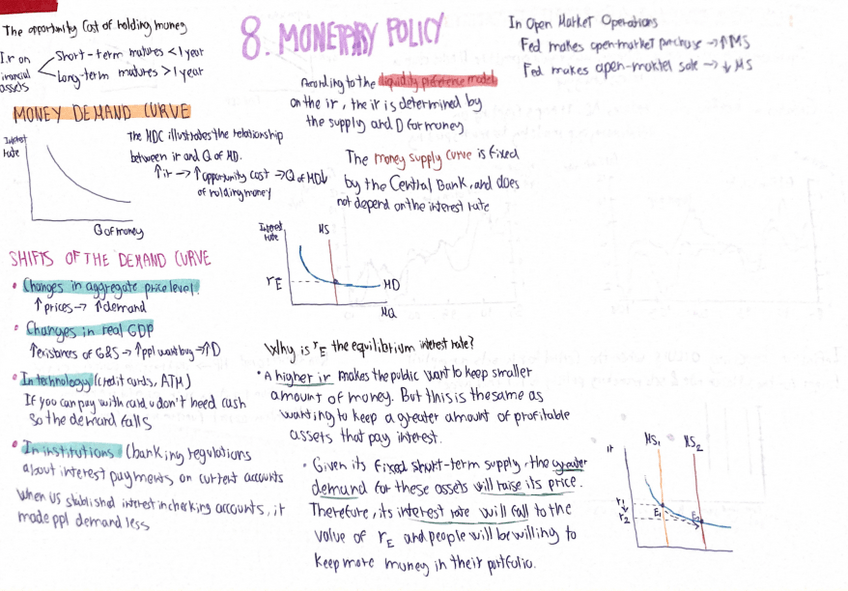 The opportunity Cost of holding money
I.r on
financial
assets
Short-term matures <1 year
Long-term matures >1 year
MONEY DEMAND CURVE
Interest
rate
Q of money
The MDC illustrates the relationship
between ir and Q of MD.
↑ir → ↑opportunity cost → Q of MD↓
of holding money
SHIFTS OF THE DEMAND CURVE
• Changes in aggregate price level.
↑prices → ↑demand
• Changes in real GDP
of G&S → ↑ppl want buy → ↑D
• In technology (credit cards, ATM)
If you can pay with card u don't need cash
so the demand falls
• In institutions (banking regulations
about interest payments on current accounts
when US stablished interest in checking accounts, it
made ppl demand less
8. MONETARY POLICY
According to the liquidity preference model
on the ir, the ir is determined by
the supply and D for money
The money supply curve is fixed
by the Central Bank, and does
not depend on the interest rate
Interest
rate
MS
rE
MD
MQ
Why is rE the equilibrium interest rate?
• A higher ir makes the public want to keep smaller
amount of money. But this is the same as
wanting to keep a greater amount of profitable
assets that pay interest.
• Given its fixed short-term supply, the greater
demand for these assets will raise its price.
Therefore, its interest rate will fall to the
value of rE and people will be willing to
keep more money in their portfolio.
In Open Market Operations
Fed makes open-market purchase → ↑MS
Fed makes open-market sale → ↓MS
ir
MS1
MS2
r1
r2
E1
E2